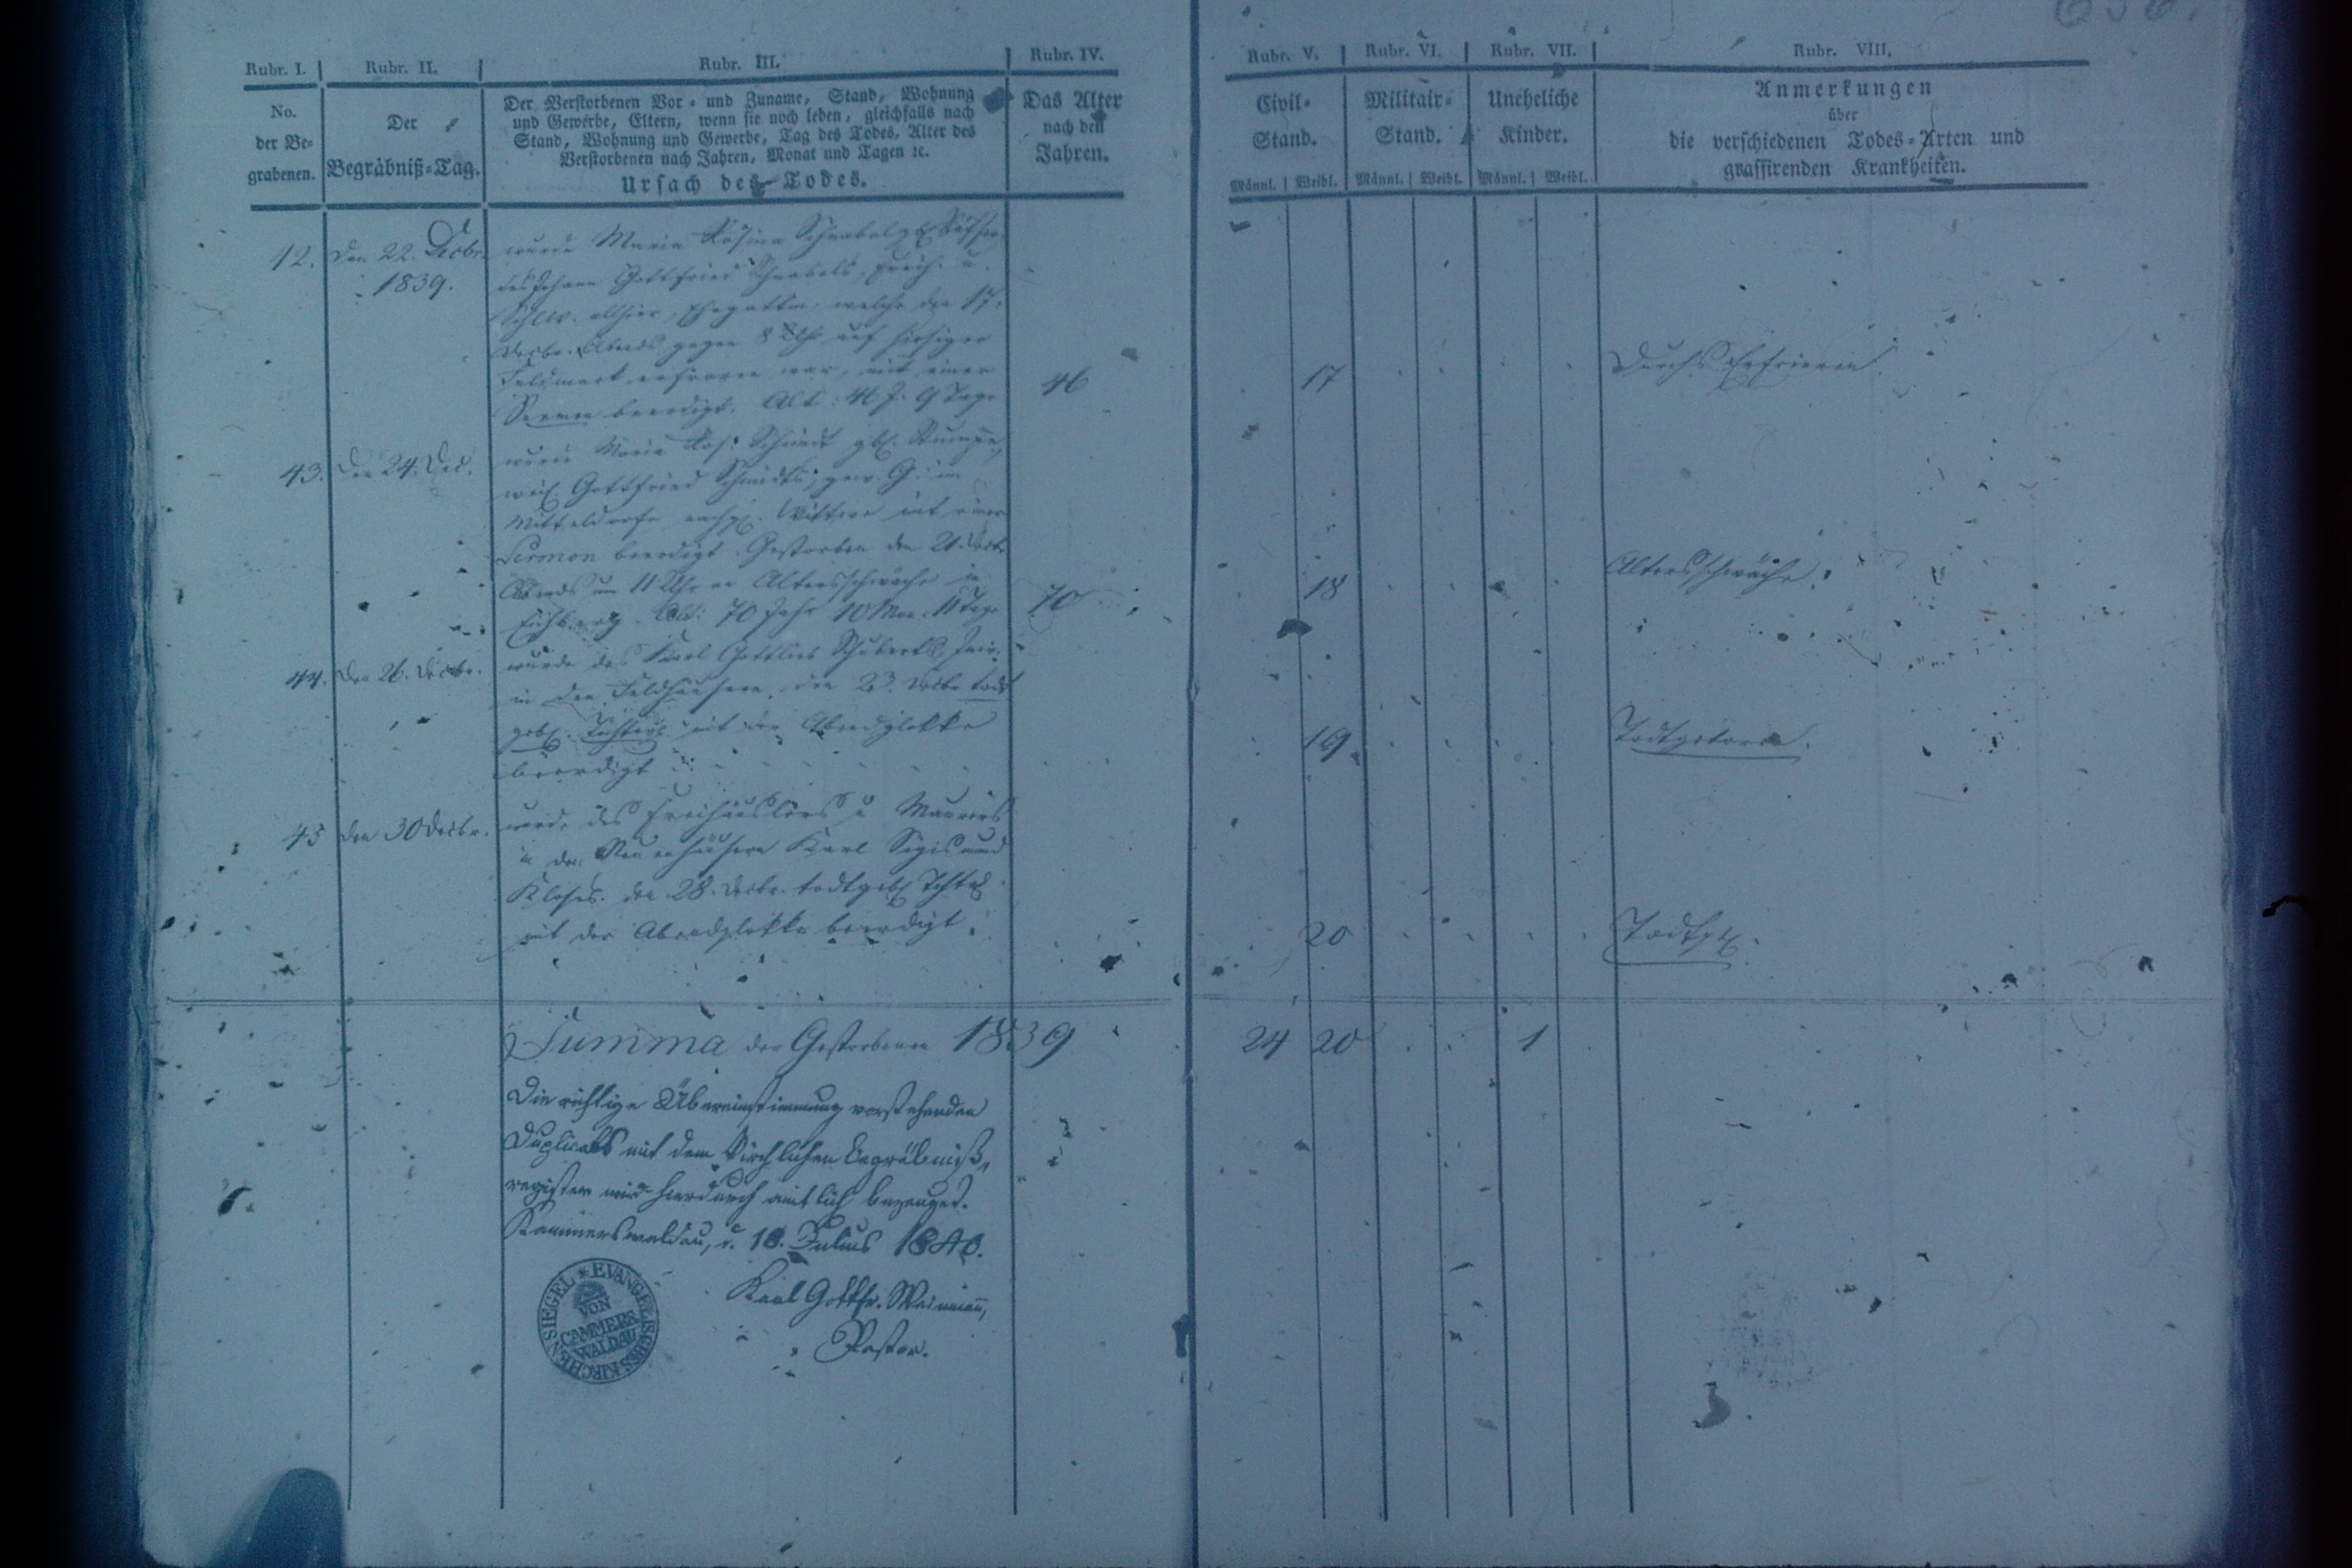 Rubr. I. Rubr. II. Rubr. III. Rubr. IV. Rubr. V. Rubr. VI. Rubr. VII. Rubr. VIII.
No.
der Be-
grabenen.
Der
Begräbniß-Tag.
Der Verstorbenen Vor- und Zuname, Stand, Wohnung
und Gewerbe, Eltern, wenn sie noch leben, gleichfalls nach
Stand, Wohnung und Gewerbe, Tag des Todes, Alter des
Verstorbenen nach Jahren, Monat und Tagen ꝛc.
Ursach des Todes.
Das Alter
nach den
Jahren.
Civil-
Stand.
Männl. Weibl.
Militair-
Stand.
Männl. Weibl.
Uneheliche
Kinder.
Männl. Weibl.
Anmerkungen
über
die verschiedenen Todes-Arten und
grassirenden Krankheiten.
42. Den 22. Decbr.
1839.
wurde Maria Rosina Schnabel
des Johann Gottfried Schnabels, Freih. u.
allhier, Ehegattin, welche den 17.
Decbr. Abends gegen 8 Uhr auf hiesiger
Feldmark erfroren war, mit einer
Sermon beerdigt. Alt: 46 J. 9 Tage
46
17
Durchs Erfrieren.
43. Den 24. Dec.
wurde Maria Ros. Schmidt geb.
weil. Gottfried Schmidts, gew. G. im
Mitteldorfe nachgel. Wittwe mit einer
Sermon beerdigt. Gestorben den 21. Decbr.
Abends um 11 Uhr an Altersschwäche in
Alt: 70 Jahr 10 Mon. 11 Tage
70
18
Altersschwäche.
44. Den 26. Decbr.
wurde des Karl Gottlieb Schuberts, Inw.
in den Feldhäusern, den 23. Decbr. todt
geb. Töchterl. mit der Abendglokke
beerdigt
19
Todtgeboren.
45 den 30 Decbr.
wurde des Freihäuslers u. Maurers
in den Neuenhäusern Karl Sigismund
Kloses. den 28. Decbr. todtgeb. Töchterl.
mit der Abendglokke beerdigt.
20
Todtgeb.
Summa der Gestorbenen 1839
24 20 1
Die richtige Übereinstimmung vorstehenden
Duplicats mit dem kirchlichen Begräbniß-
register wird hierdurch amtlich bezeuget.
Kammerswaldau, d. 10. Julius 1840.
Karl Gottfr. Weinmann,
Pastor.
EVANGELISCHES KIRCHEN SIEGEL
VON
CAMMERS
WALDAU